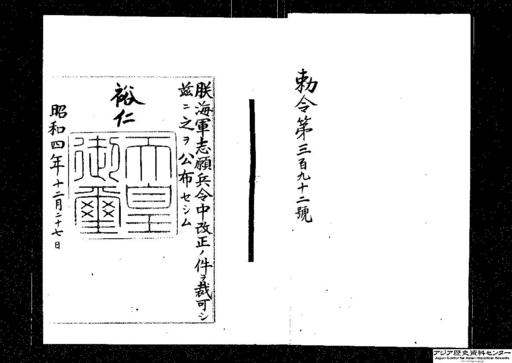 勅令第三百九十二號
朕海軍志願兵令中改正ノ件ヲ裁可シ
玆ニ之ヲ公布セシム
裕仁
天皇御璽
昭和四年十二月二十七日
アジア歴史資料センター
Japan Center for Asian Historical Records